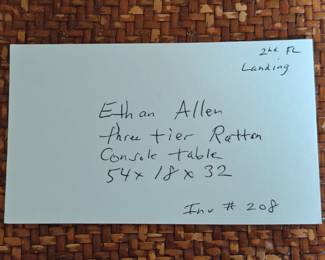 2nd FL
Landing
Ethan Allen
three tier Rattan
Console table
54x 18 x 32
Inv # 208